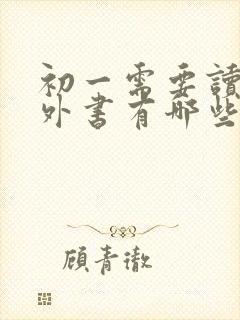 初一需要讀
外書有哪些
顧青澈